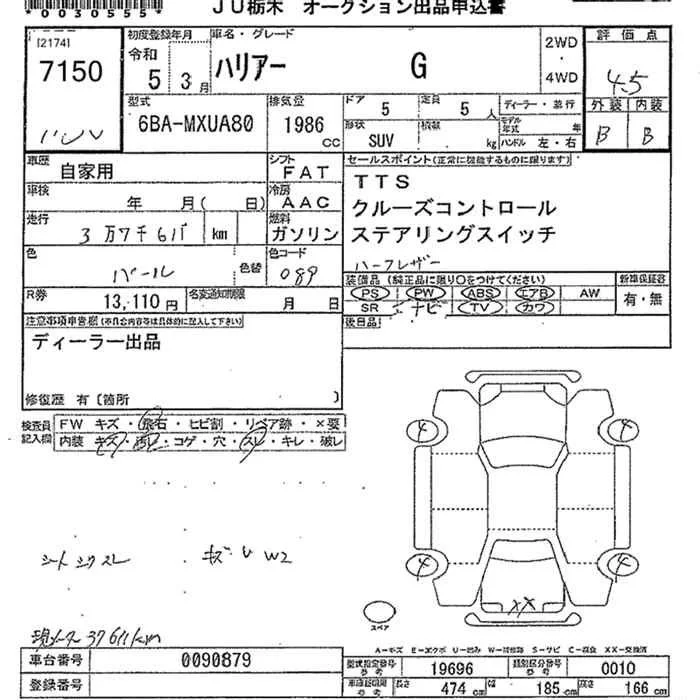 *0030555*
JU栃木 オークション出品申込書
[2174]
7150
初度登録年月
令和
5 3月
車名・グレード
ハリアー G
2WD
・
4WD
評価点
4.5
外装 内装
B B
型式
6BA-MXUA80
排気量
1986
cc
ドア
5
定員
5人
形状
SUV
積載
kg
ディーラー・並行
モデル年式 年
ハンドル 左・右
車歴
自家用
シフト
FAT
車検
年 月( 日)
冷房
AAC
走行
km
燃料
ガソリン
色
パール
色替
色コード
089
R券
13,110円
名変通知期限
月 日
セールスポイント(正常に機能するものに限ります)
TTS
クルーズコントロール
ステアリングスイッチ
ハーフレザー
装備品(純正品に限り○をつけてください)
PS PW ABS エアB AW
SR ナビ TV カワ
新車保証書
有・無
後日品
注意事項申告欄(不具合内容等は具体的に記入して下さい)
ディーラー出品
修復歴 有〔箇所 〕
検査員記入欄
FW キズ・飛石・ヒビ割・リペア跡・×要
内装 キズ・汚レ・コゲ・穴・スレ・キレ・破レ
4 4
4 4
XX
スペア
シートシワスレ
キズ・U W2
現メーター37611km
A-キズ E-エクボ U-凹み W-補修跡 S-サビ C-腐食 XX-交換済
車台番号
0090879
型式指定番号
参考
19696
類別区分番号
参考
0010
登録番号
車庫証明用
参考
長さ
474cm
幅
185cm
高さ
166cm